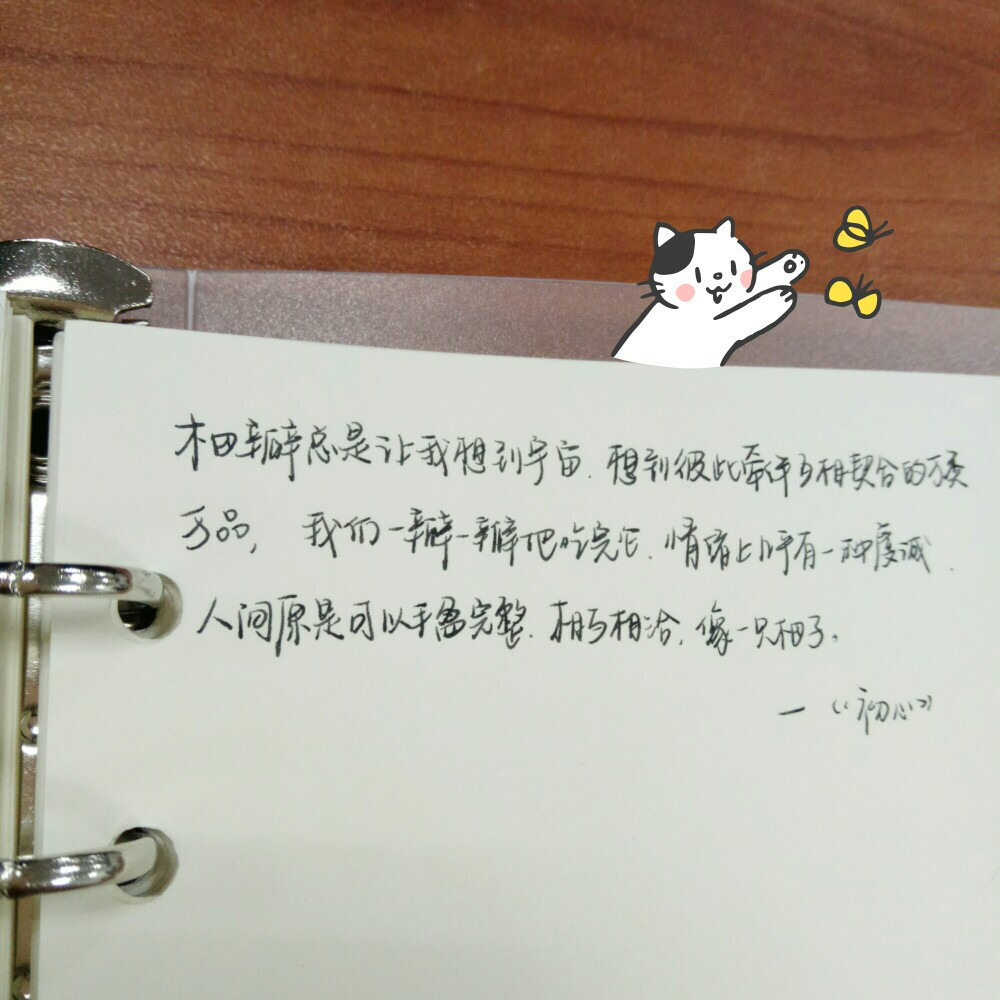 柑瓣总是让我想到宇宙.想到彼此牵绊互相契合的万类
万品, 我们一瓣一瓣把吃完它.情绪上几乎有一种虔诚.
人间原是可以丰盈完整.相与相洽,像一只柑子。
—《初心》